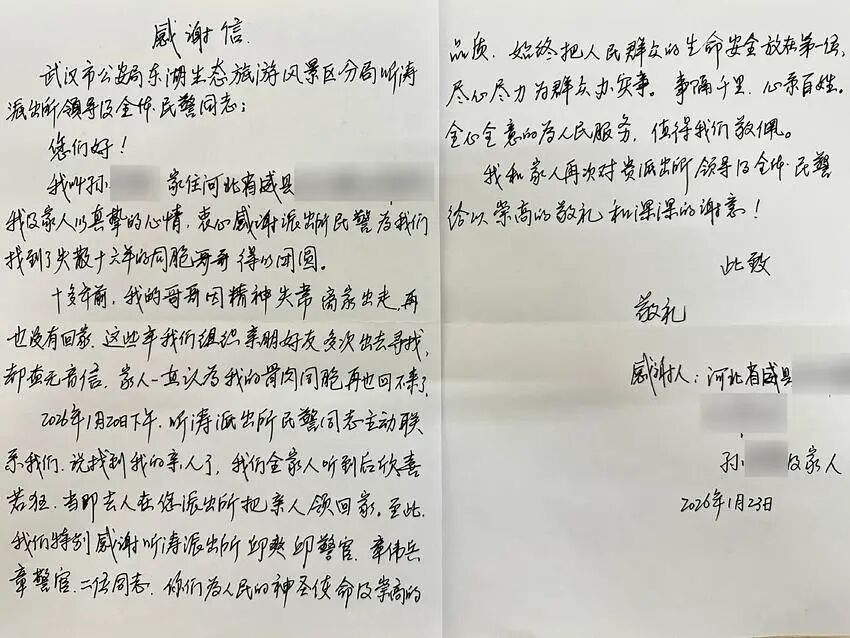 感谢信
武汉市公安局东湖生态旅游风景区分局听涛
派出所领导及全体民警同志：
您们好！
我叫孙 家住河北省威县
我及家人以真挚的心情，衷心感谢派出所民警为我们
找到了失散十六年的同胞哥哥得以团圆。
十多年前，我的哥哥因精神失常离家出走，再
也没有回家，这些年我们组织亲朋好友多次出去寻找，
都杳无音信，家人一直认为我的骨肉同胞再也回不来了
2026年1月20日下午，听涛派出所民警同志主动联
系我们，说找到我的亲人了，我们全家人听到后欣喜
若狂，当即去人在您派出所把亲人领回家。至此，
我们特别感谢听涛派出所邱爽邱警官，章伟兵
章警官，二位同志，你们为人民的神圣使命及崇高的
品质，始终把人民群众的生命安全放在第一位，
尽心尽力为群众办实事。事隔千里，心系百姓。
全心全意的为人民服务，值得我们敬佩。
我和家人再次对贵派出所领导及全体民警
给以崇高的敬礼和深深的谢意！
此致
敬礼
感谢人：河北省威县
孙 及家人
2026年1月23日